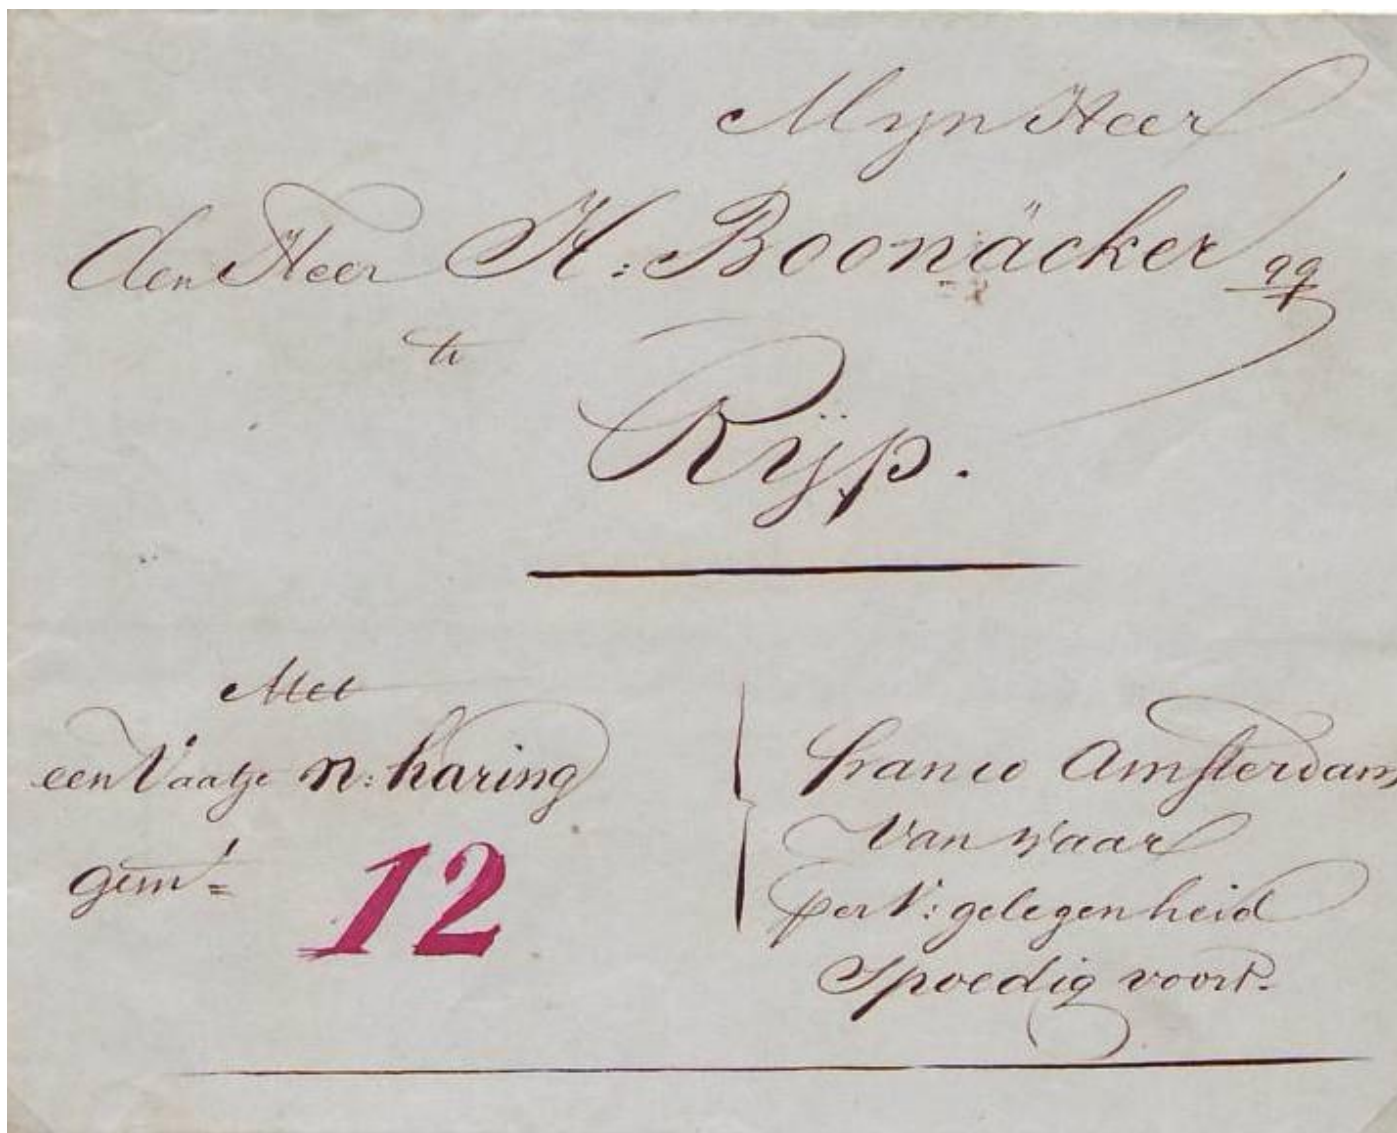 Mijn Heer
den Heer H: Boonäcker qq
te
Rijp.
Met
een Vaatje n: haring
gem:
12
franco Amsterdam
Van Waar
per V: gelegenheid
Spoedig voort.